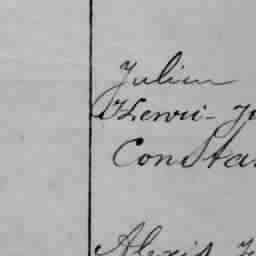 Julien
Henri-Ju
Consta
Alexis J